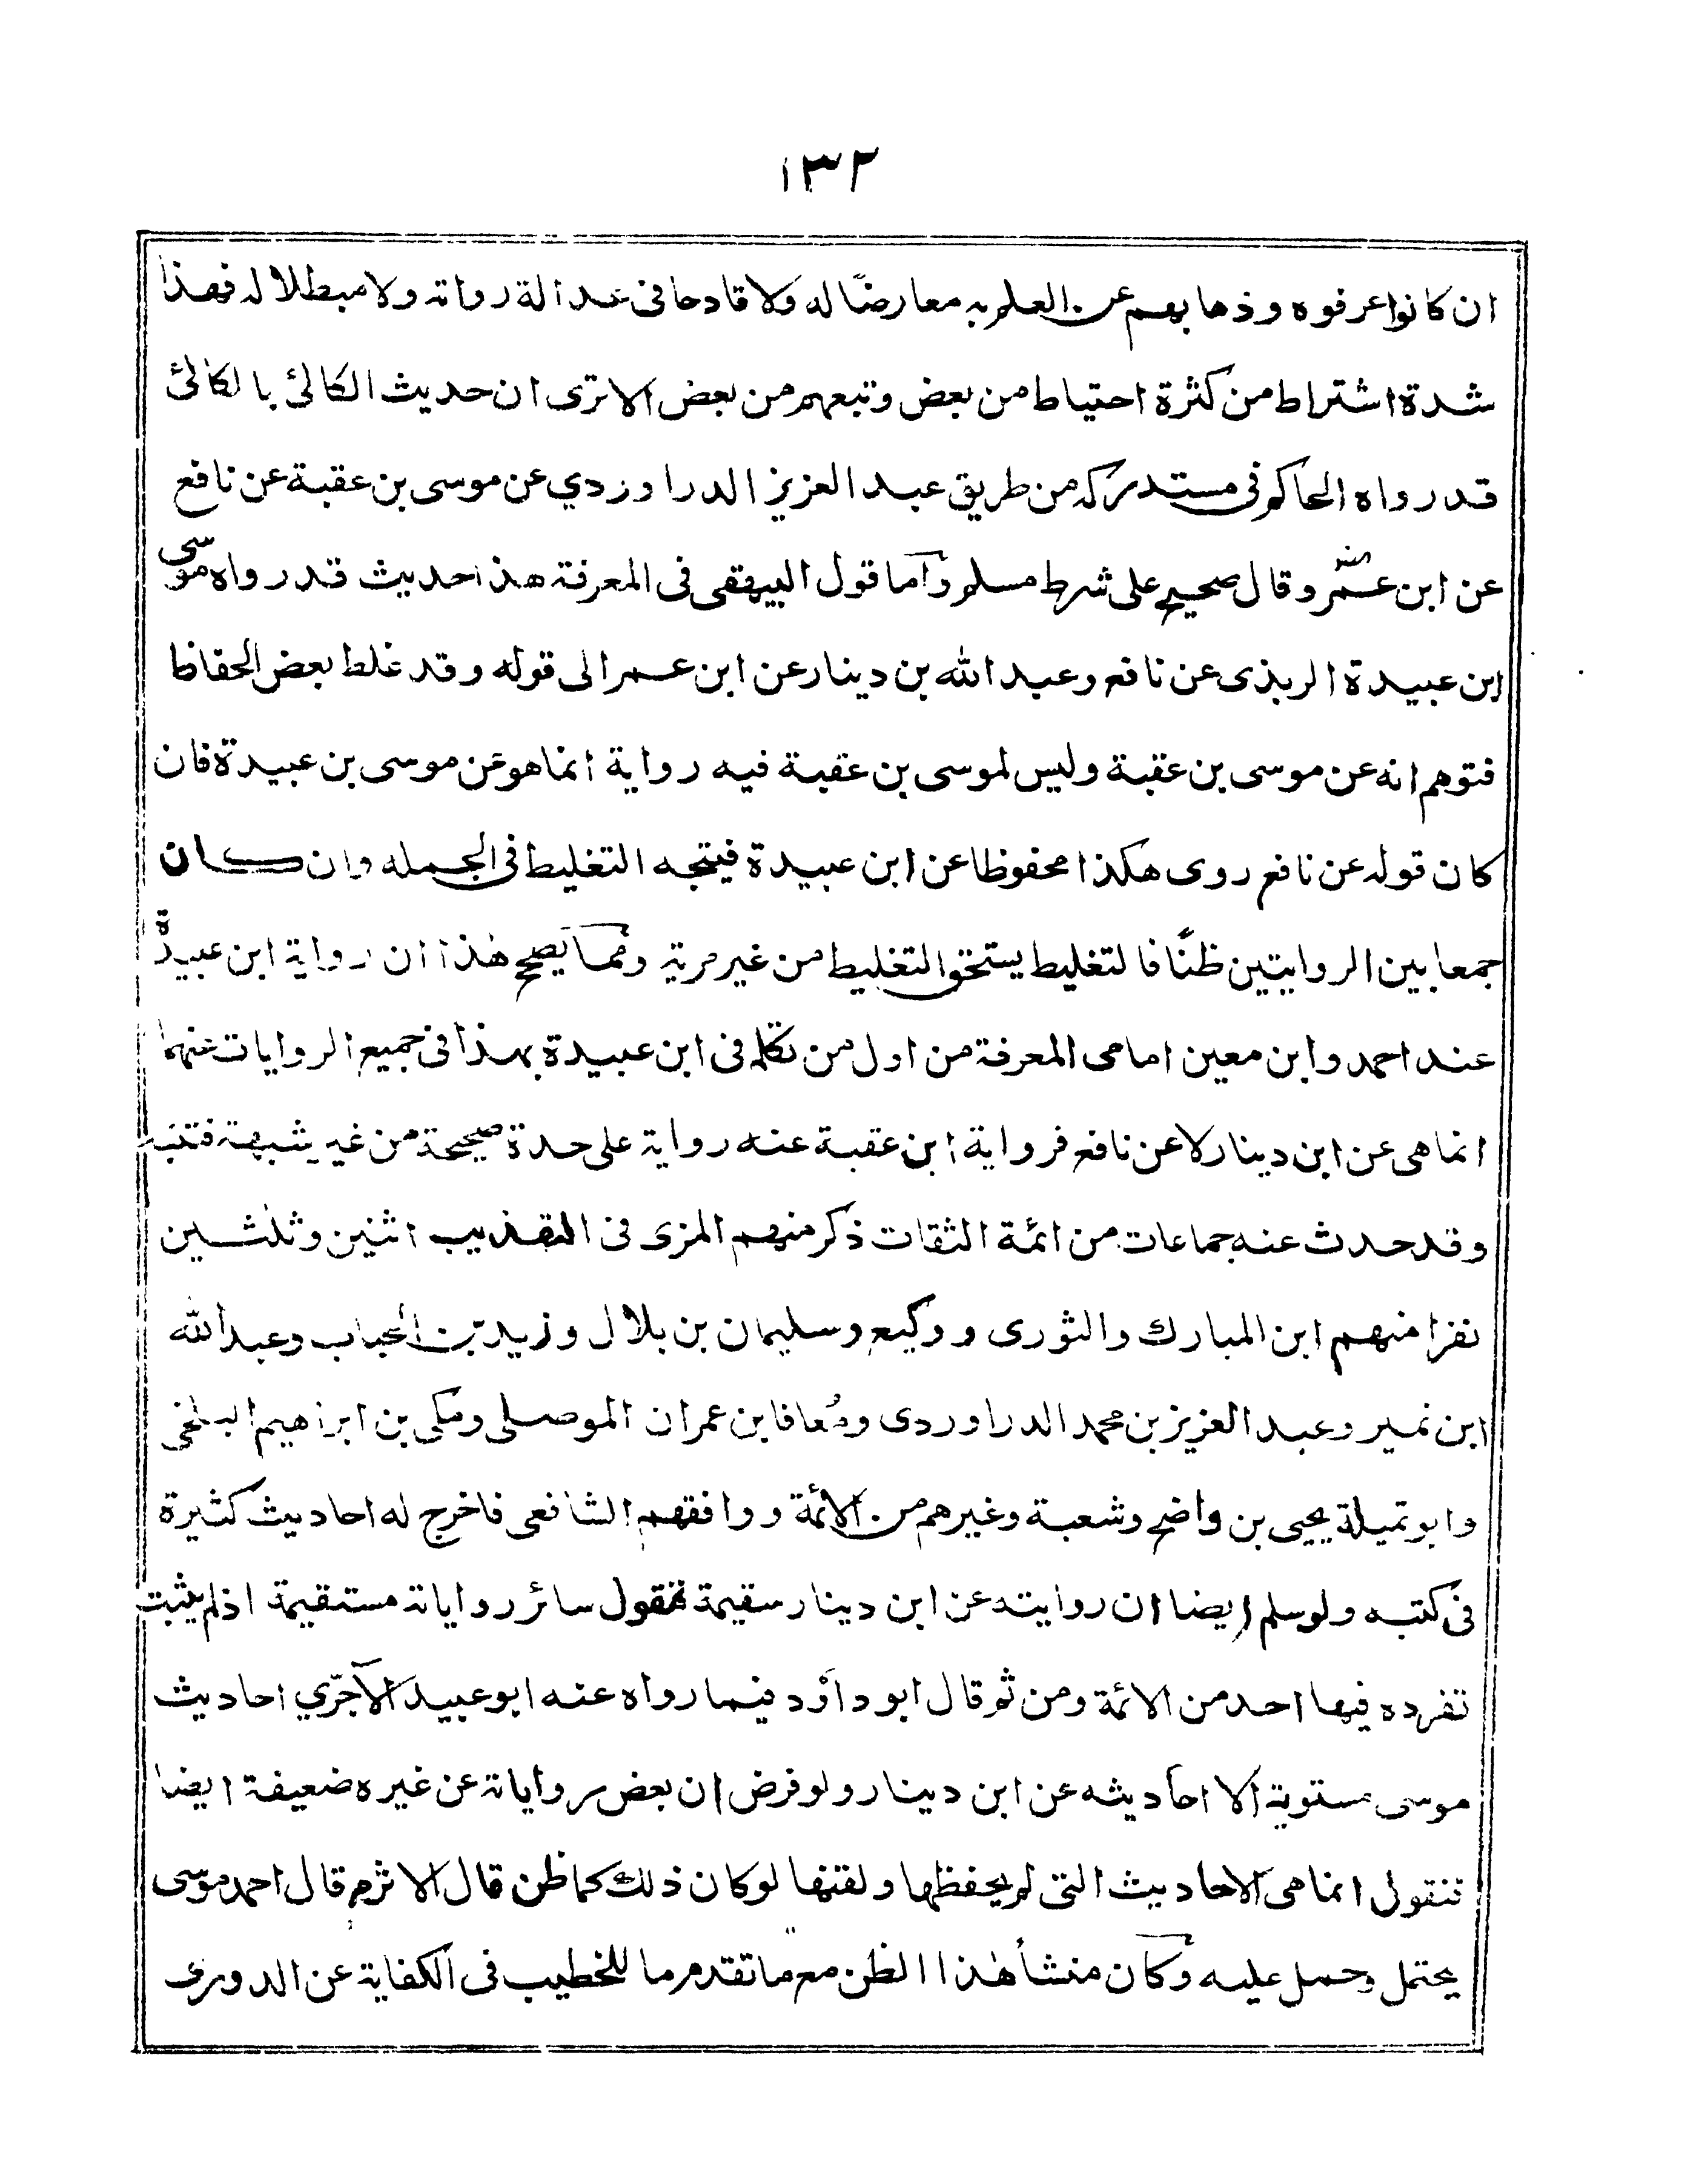 ١٣٢
ان كانوا عرفوه وذهابهم عن العلم به معارضًا له ولا قادحا فى عدالة رواته ولا مبطلا له فهذا
شدة اشتراط من كثرة احتياط من بعض وتبعهم من بعض الا ترى ان حديث الكالئ بالكالئ
قد رواه الحاكم فى مستدركه من طريق عبد العزيز الدراوردي عن موسى بن عقبة عن نافع
عن ابن عمر وقال صحيح على شرط مسلم وآما قول البيهقى فى المعرفة هذا حديث قد رواه موسى
ابن عبيدة الربذى عن نافع وعبد الله بن دينار عن ابن عمر الى قوله وقد غلط بعض الحفاظ
فتوهم انه عن موسى بن عقبة وليس لموسى بن عقبة فيه رواية انما هو عن موسى بن عبيدة فان
كان قوله عن نافع روى هكذا محفوظا عن ابن عبيدة فيتجه التغليط فى الجمله وان كان
جمعا بين الروايتين ظنًا فالتغليط يستحق التغليط من غير مرية ومما يصحح هذا ان رواية ابن عبيدة
عند احمد وابن معين امامى المعرفة من اول من تكلم فى ابن عبيدة بهذا فى جميع الروايات عنهما
انما هى عن ابن دينار لا عن نافع فرواية ابن عقبة عنه رواية على حدة صحيحة من غير شبهة فتنبه
وقد حدث عنه جماعات من ائمة الثقات ذكر منهم المزى فى التهذيب اثنين وثلثين
نفرا منهم ابن المبارك والثورى ووكيع وسليمان بن بلال وزيد بن الحباب وعبد الله
ابن نمير وعبد العزيز بن محمد الدراوردى ومُعافا بن عمران الموصلى ومكى بن ابراهيم البلخى
وابو تميلة يحيى بن واضح وشعبة وغيرهم من الائمة ووافقهم الشافعى فاخرج له احاديث كثيرة
فى كتبه ولو سلم ايضا ان روايته عن ابن دينار سقيمة فنقول سائر رواياته مستقيمة اذ لم يثبت
تفرده فيها احد من الائمة ومن ثم قال ابو داؤد فيما رواه عنه ابو عبيد الآجرّي احاديث
موسى مستوية الا احاديثه عن ابن دينار ولو فرض ان بعض رواياته عن غيره ضعيفة ايضا
فنقول انما هى الاحاديث التى لم يحفظها ولقنها لو كان ذلك كما ظن قال الاثرم قال احمد موسى
يحتمل وحمل عليه وكان منشأ هذا الظن مع ما تقدم ما للخطيب فى الكفاية عن الدورى